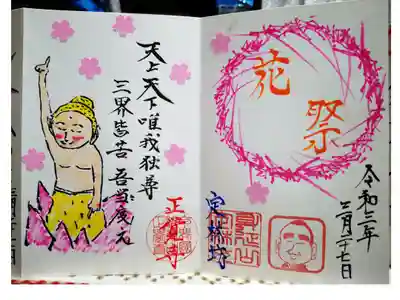 花
祭
令和三年
月二十七日
定林坊
身延山
天上天下唯我独尊
三界皆苦 吾当度之
正覚寺